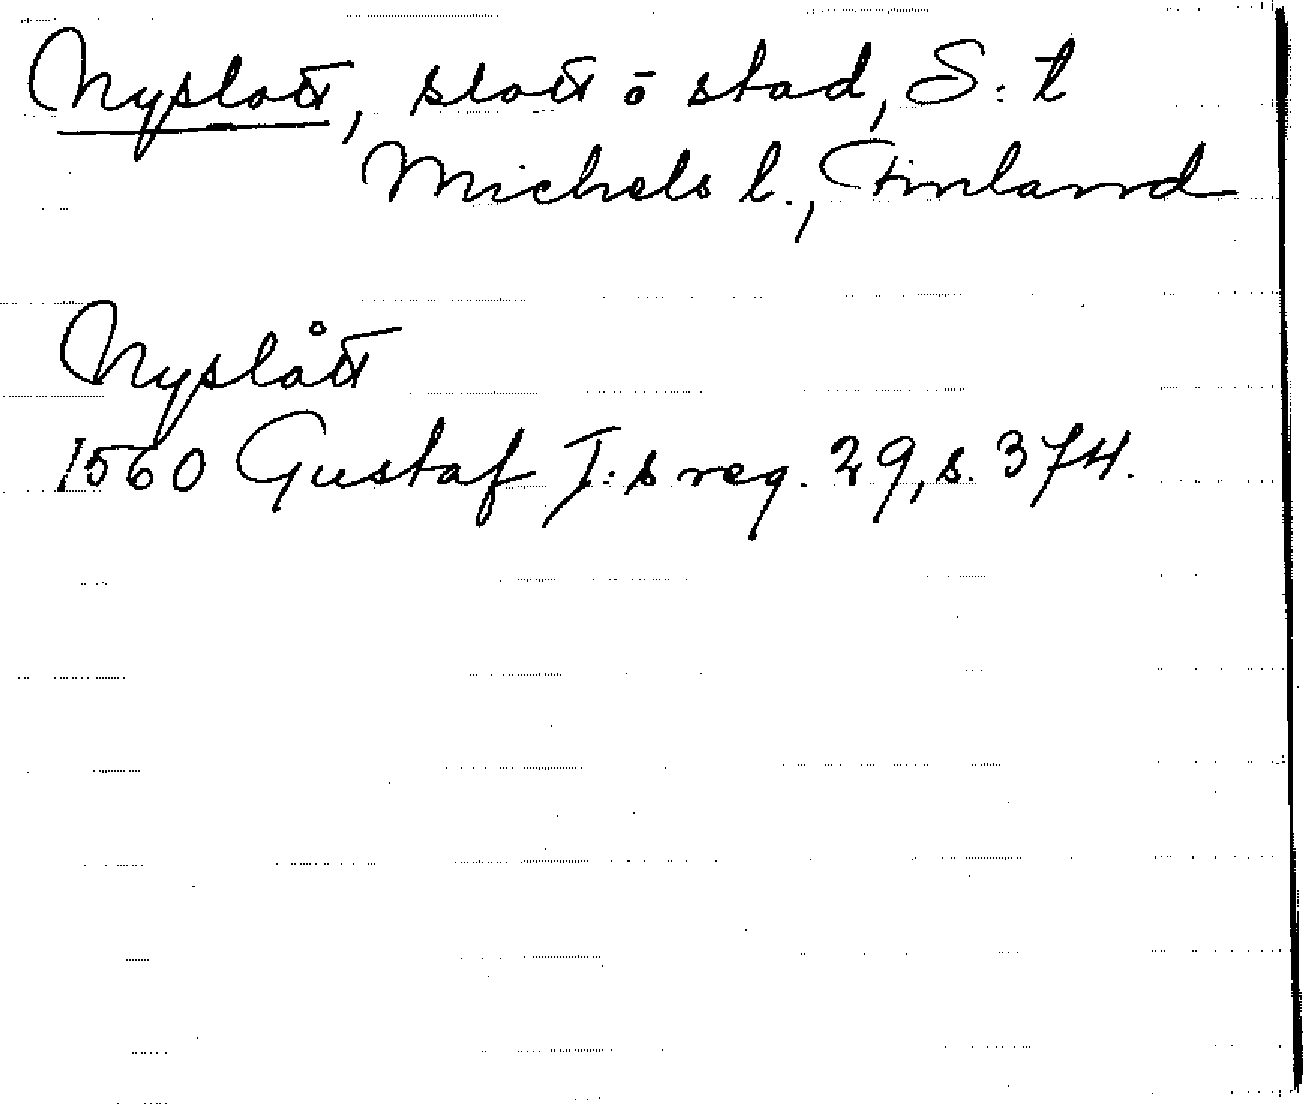 Nyslott, slott ō stad, S:t
Michels l., Finland
Nyslått
1560 Gustaf I:s reg. 29, s. 374.